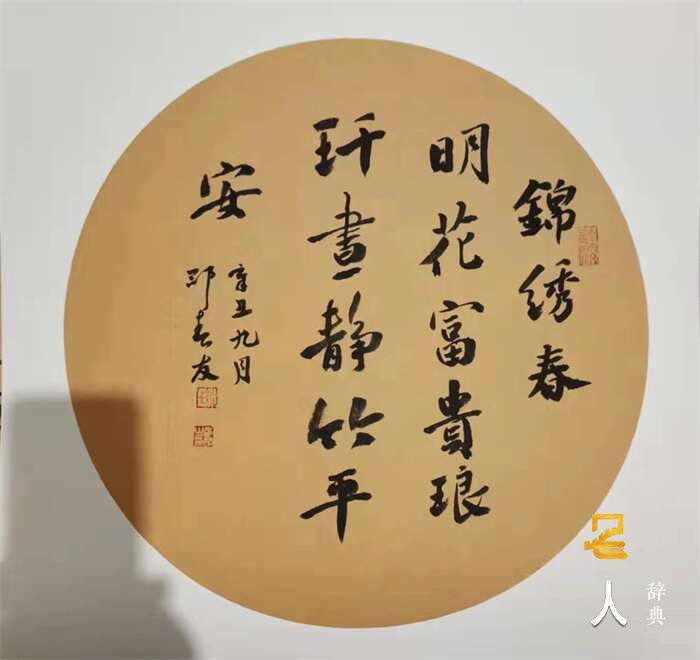 錦绣春
明花富貴琅
玕晝静竹平
安
辛丑九月
邓春友
人
辞典